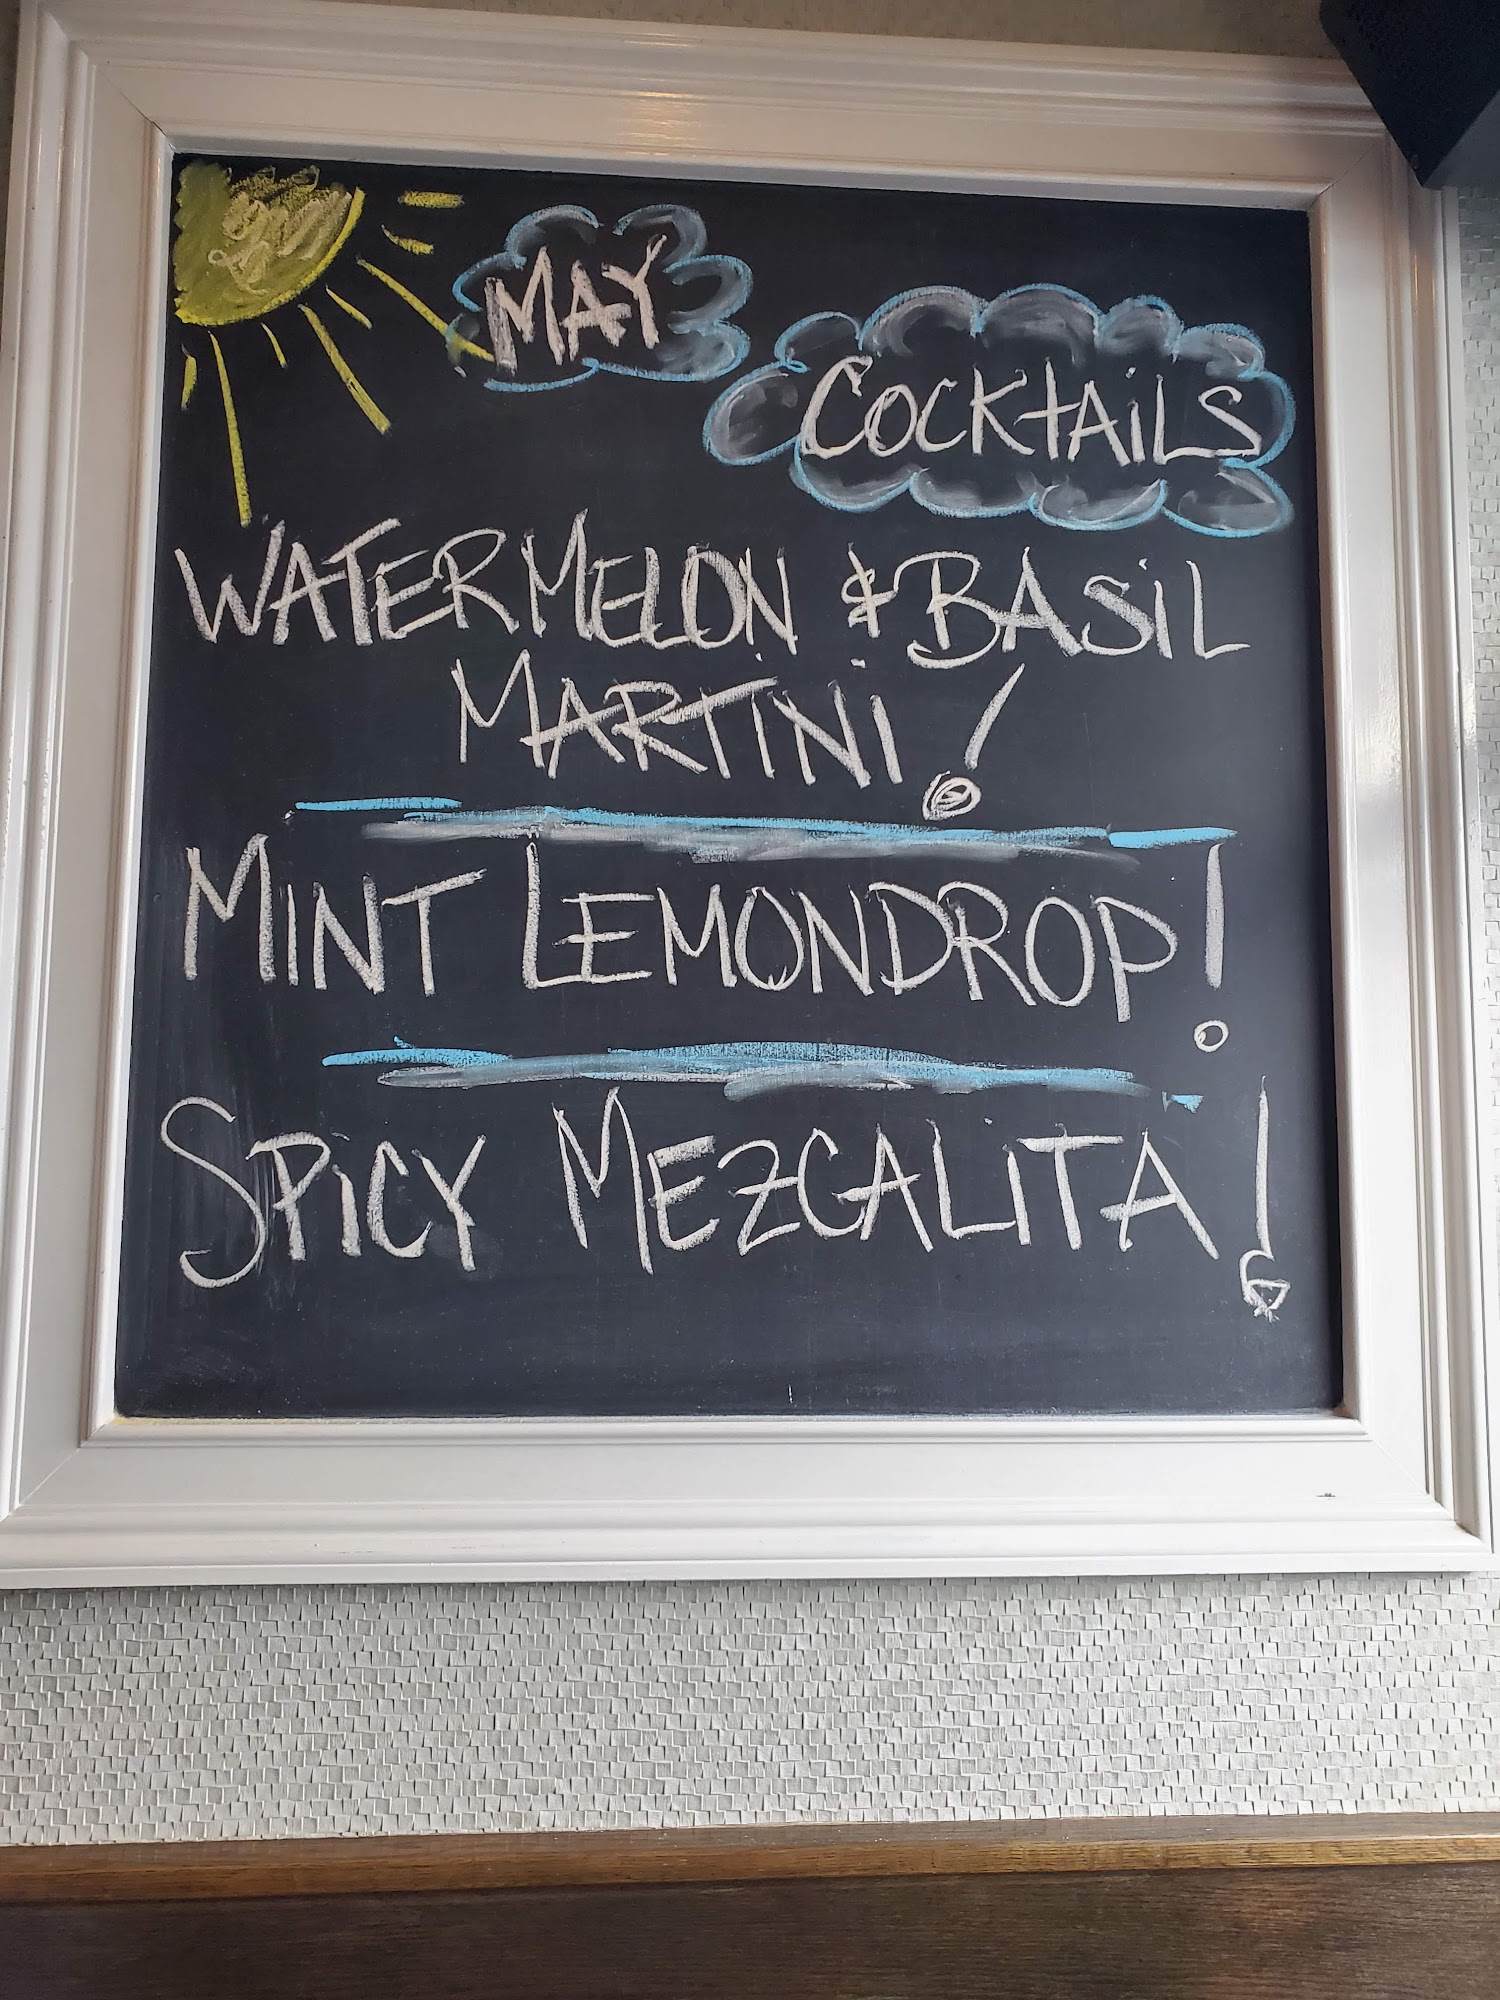 MAY
COCKTAiLS
WATERMELON & BASiL
MARTiNi!
MINT LEMONDROP!
SPiCY MEZCALiTA!